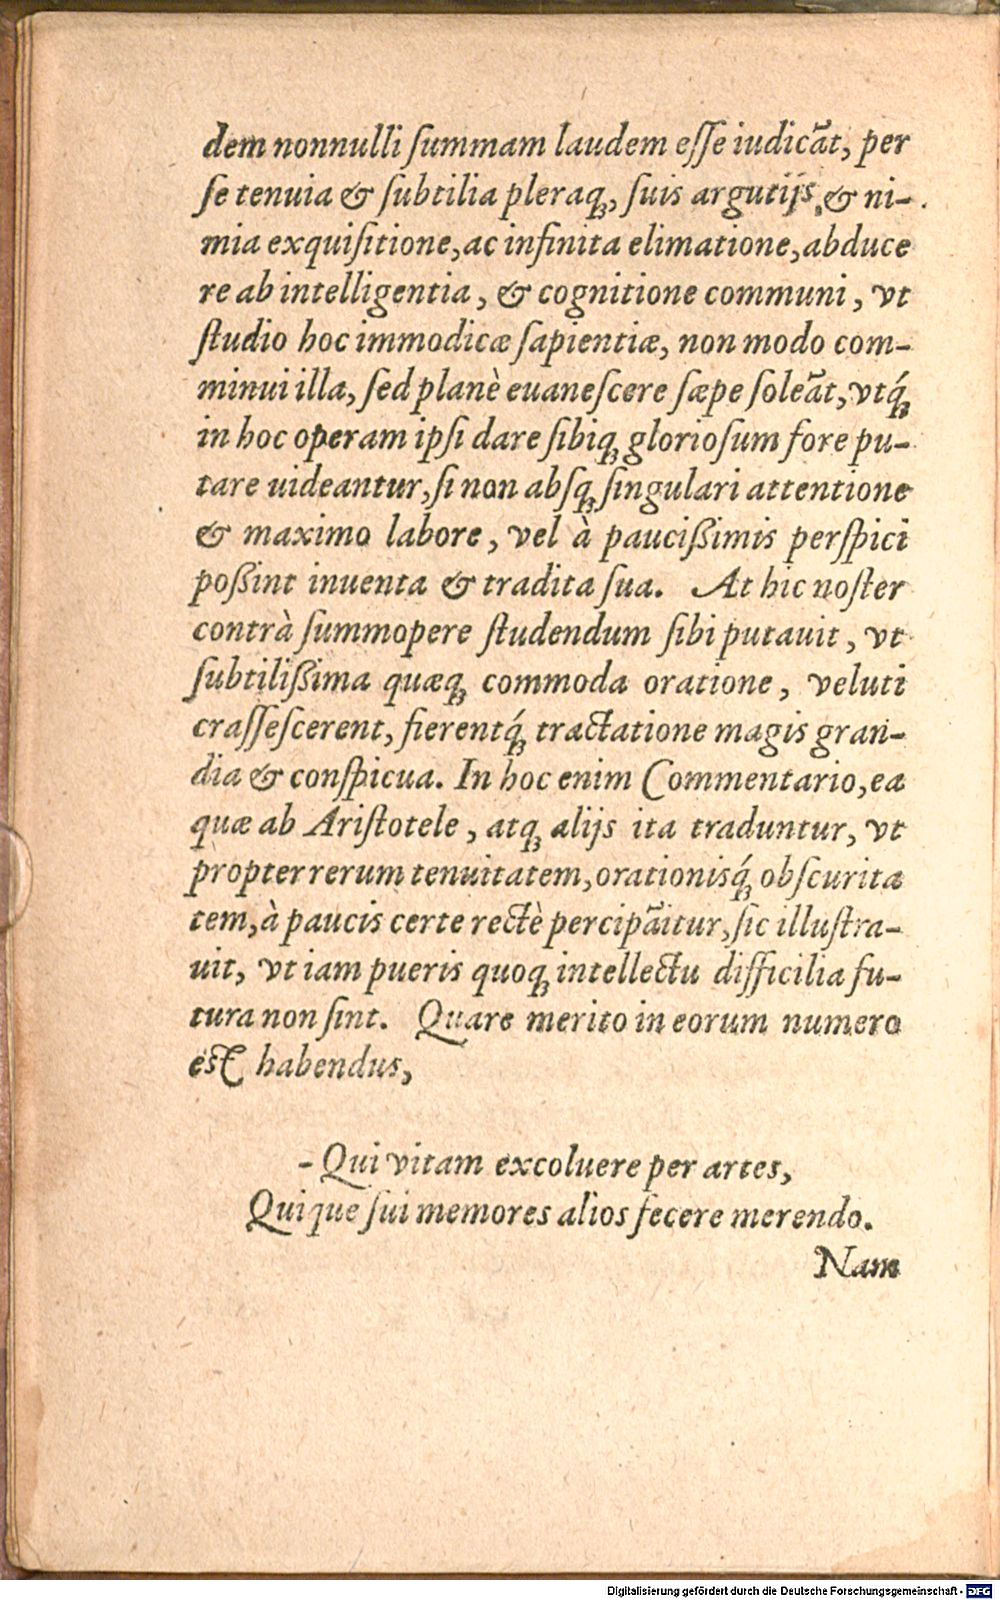 dem nonnulli ſummam laudem eſſe iudicãt, per
ſe tenuia & ſubtilia pleraq;, ſuis argutijs, & ni-
mia exquiſitione, ac infinita elimatione, abduce
re ab intelligentia, & cognitione communi, vt
ſtudio hoc immodicæ ſapientiæ, non modo com-
minui illa, ſed planè euaneſcere ſæpe ſoleãt, vtq́;
in hoc operam ipſi dare ſibiq; glorioſum fore pu-
tare uideantur, ſi non abſq; ſingulari attentione
& maximo labore, vel à pauciſſimis perſpici
poſſint inuenta & tradita ſua. At hic noſter
contrà ſummopere ſtudendum ſibi putauit, vt
ſubtiliſſima quæq; commoda oratione, veluti
craſſeſcerent, fierentq́; tractatione magis gran-
dia & conſpicua. In hoc enim Commentario, ea
quæ ab Ariſtotele, atq; alijs ita traduntur, vt
propter rerum tenuitatem, orationisq́; obſcurita
tem, à paucis certe rectè percipãitur, ſic illuſtra-
uit, vt iam pueris quoq; intellectu difficilia fu-
tura non ſint. Quare merito in eorum numero
est habendus,
- Qui vitam excoluere per artes,
Quique ſui memores alios fecere merendo.
Nam
Digitalisierung gefördert durch die Deutsche Forschungsgemeinschaft - DFG